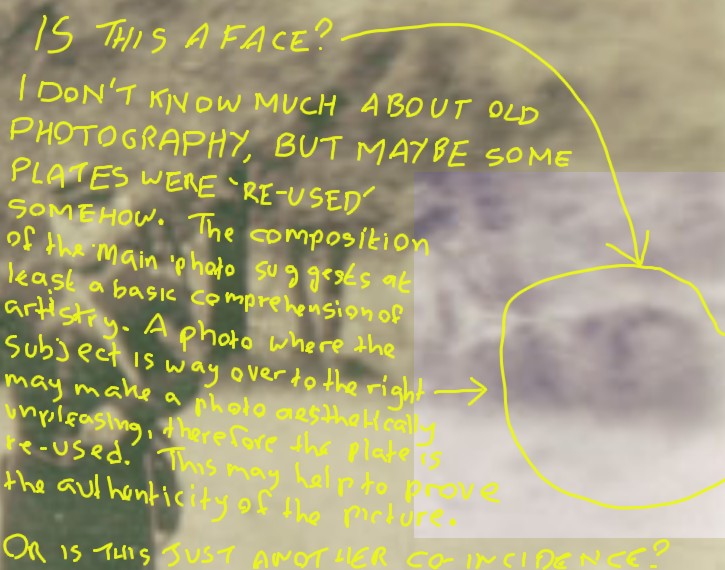 IS THIS A FACE?
I DON'T KNOW MUCH ABOUT OLD
PHOTOGRAPHY, BUT MAYBE SOME
PLATES WERE 'RE-USED'
SOMEHOW. The composition
of the main photo suggests at
least a basic comprehension of
artistry. A photo where the
subject is way over to the right
may make a photo aesthetically
unpleasing, therefore the plate is
re-used. This may help to prove
the authenticity of the picture.
OR IS THIS JUST ANOTHER CO-INCIDENCE?